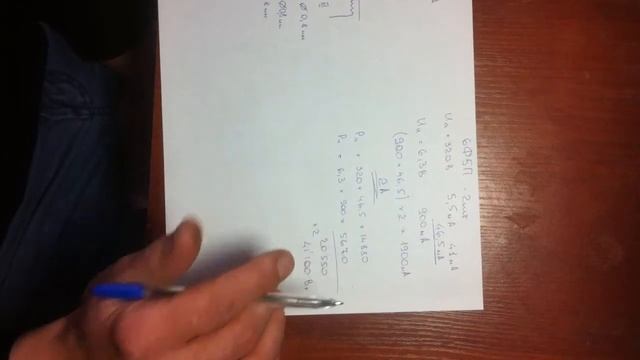 6Ф5П - 2шт
Uа = 320В 5,5мА 41мА
46,5мА
Uн = 6,3В 900мА
(900 + 46,5) × 2 = 1900мА
2А
Pа = 320 × 46,5 = 14880
Pн = 6,3 × 900 = 5670
20550
×2
41'100 Вт
Ø 0,8 мм